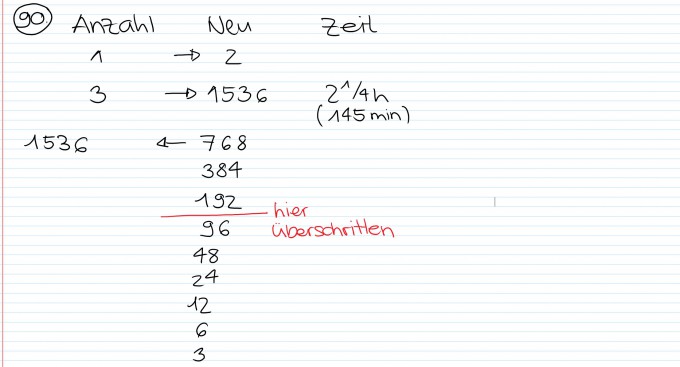 90. Anzahl Neu Zeit
1 → 2
3 → 1536 2 1/4 h
(145 min)
1536 ← 768
384
192
hier
96 überschritten
48
24
12
6
3